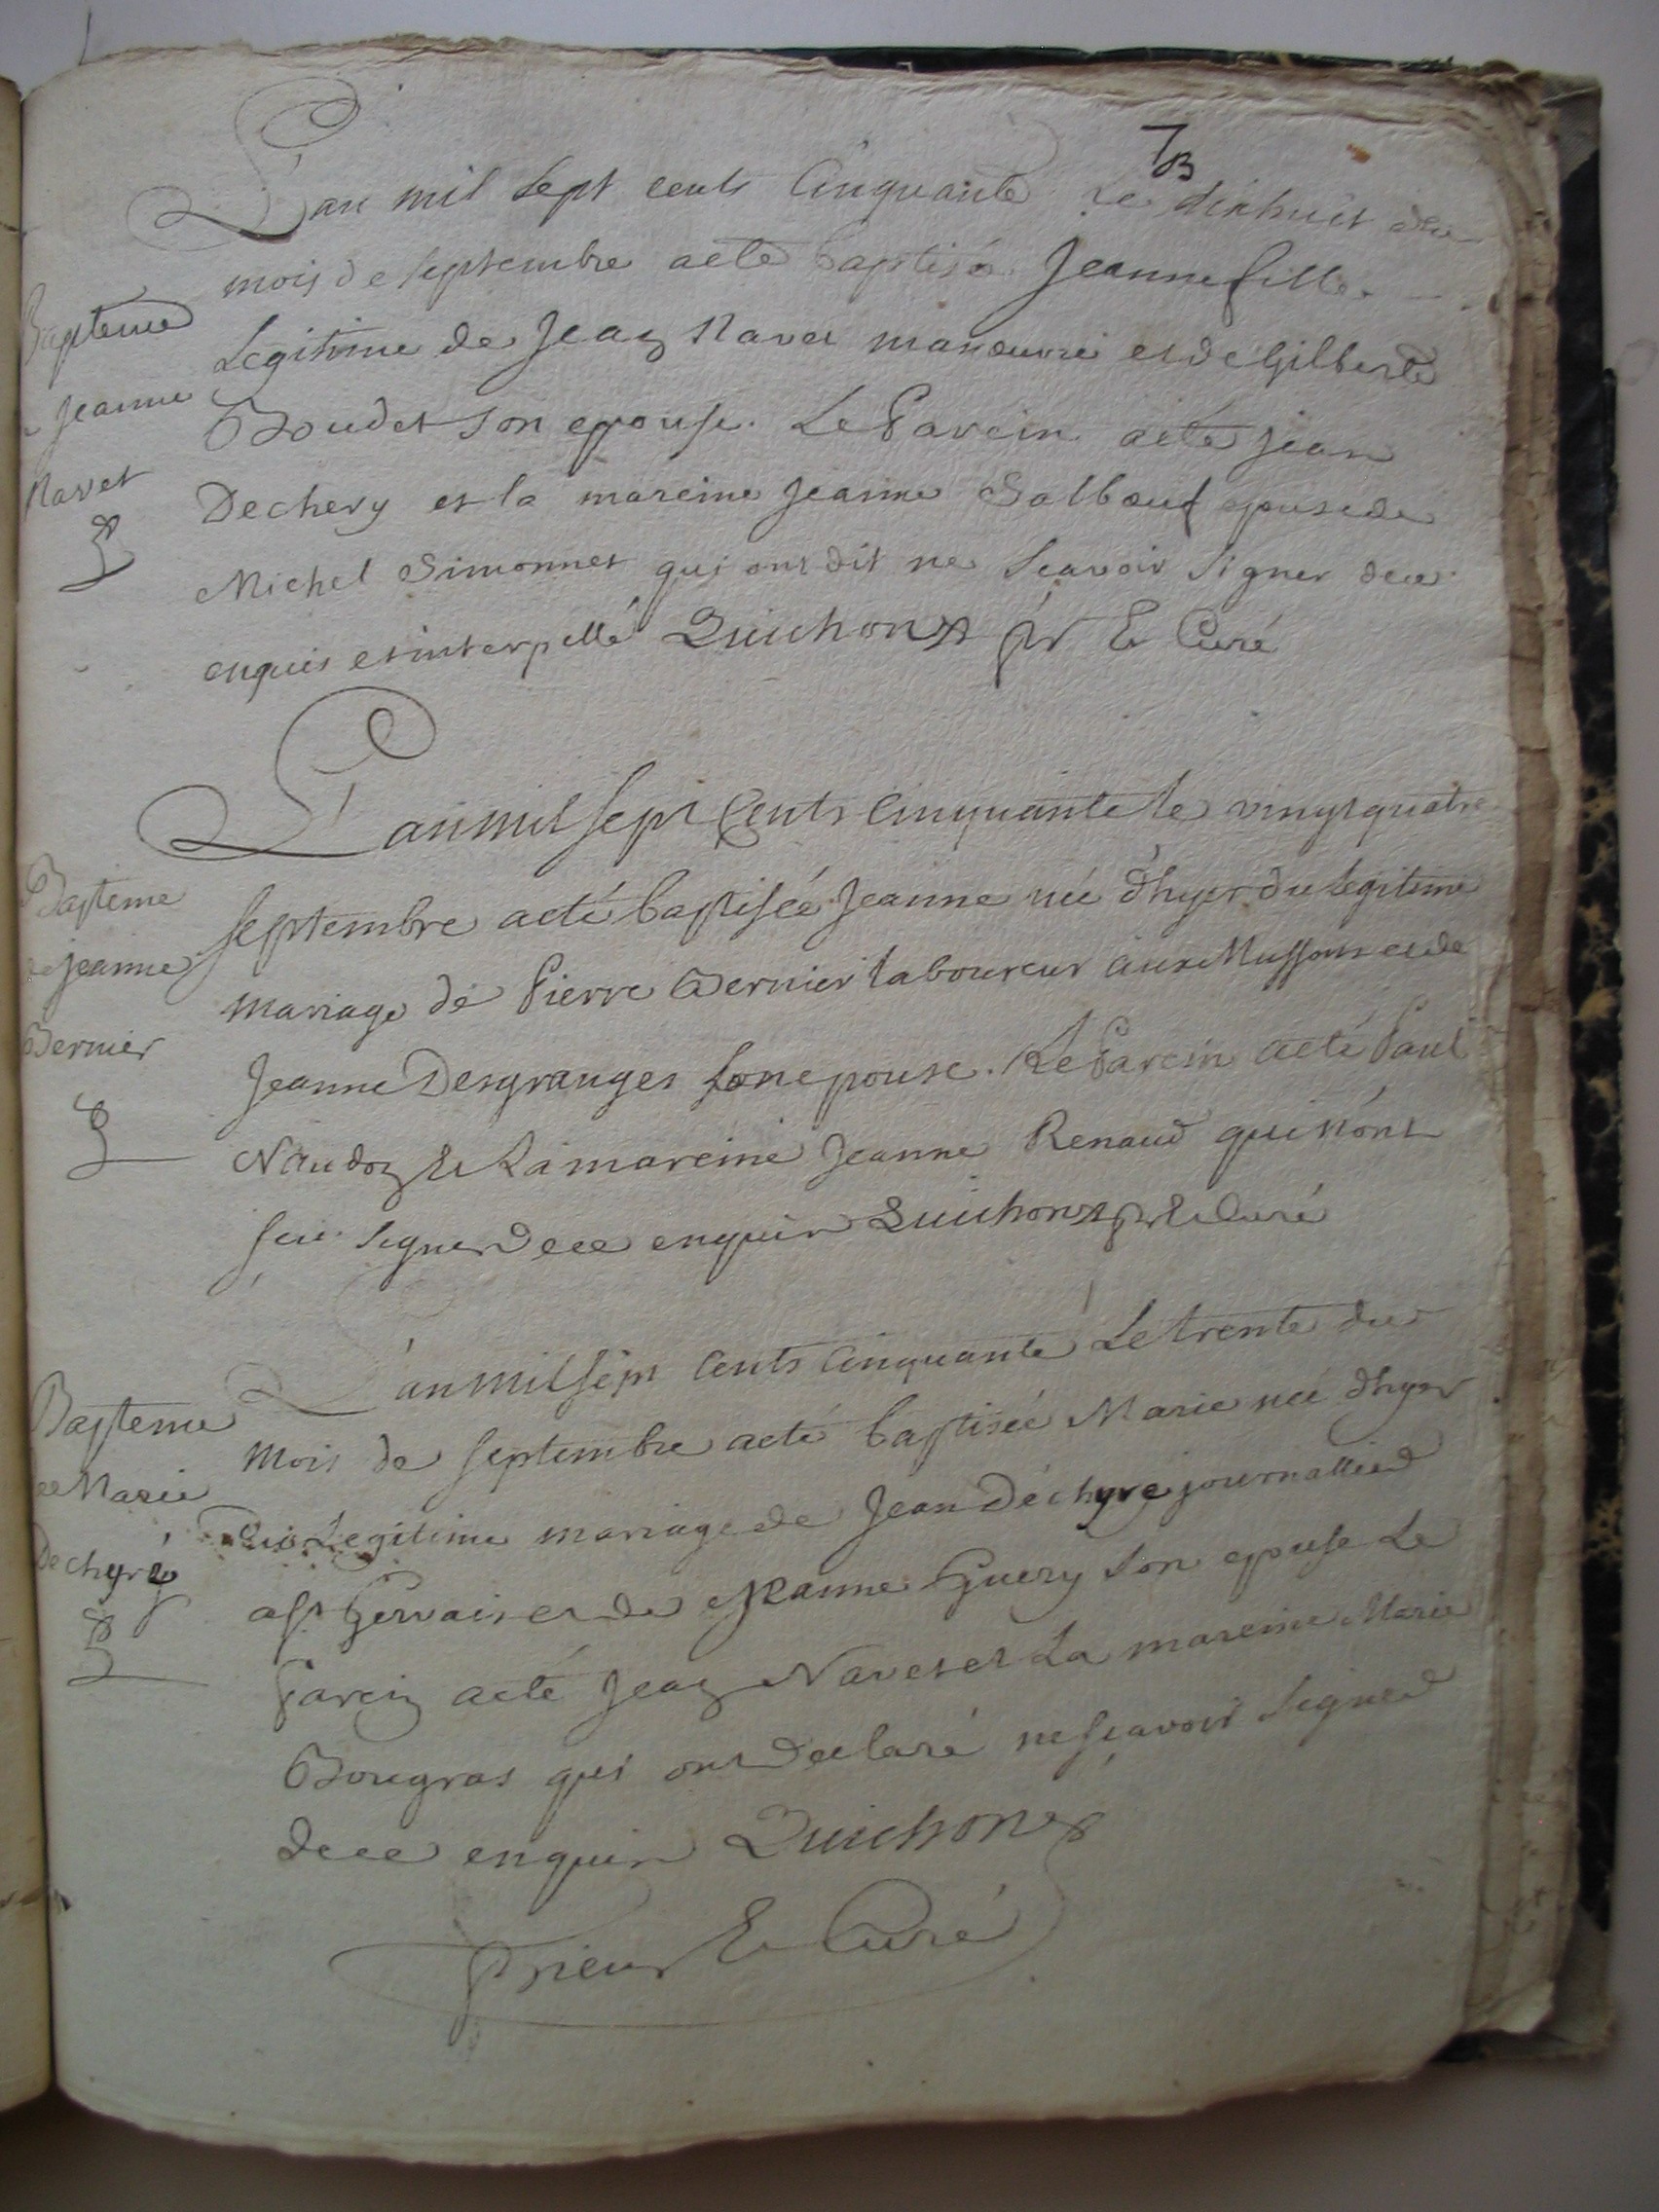 73
L'an mil sept cents Cinquante Le dixhuit du
mois de septembre aeté baptisé Jeanne fille
Legitime de Jean Navet manœuvre et de Gilberte
Boudet son epouse. Le Parein aeté jean
Dechery et la mareine jeanne Salbœuf epouse de
Michel Simonnet qui ont dit ne scavoir signer dece
enquis et interpellé Quichon pr & Curé
Bapteme
jeanne
Navet
L'an mil sept Cents Cinquante le vingt quatre
septembre aeté baptiseé Jeanne neé d'hyer du legitime
mariage de Pierre Bernier laboureur aux Mussons et de
Jeanne Desgranges son epouse. Le Parein aeté Paul
Naudon & La mareine Jeanne Renaud qui n'ont
sceu signer dece enquis Quichon pr & Curé
Bapteme
de jeanne
Bernier
L'an mil sept Cents Cinquante Le trente du
mois de septembre aeté baptiseé Marie neé d'hyer
du Legitime mariage de Jean Dechyre journallier
a st Gervais et de Jeanne Guery son epouse Le
Parein aeté Jean Navet et La mareine Marie
Bougras qui ont declaré ne scavoir signer
dece enquis Quichon
Prieur & Curé
Bapteme
de Marie
Dechyré